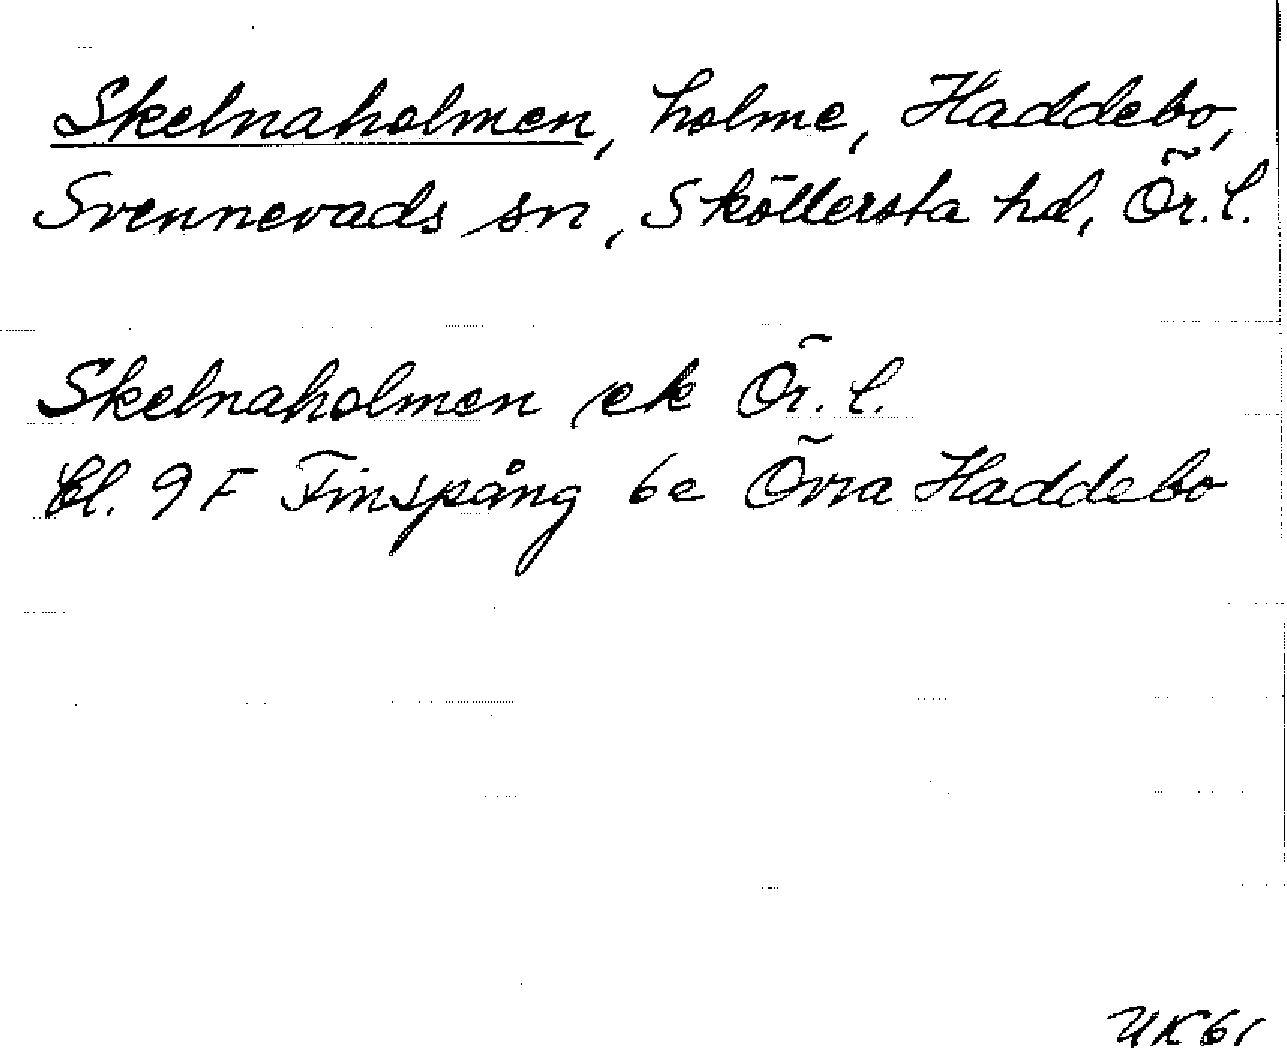 Skelnaholmen, holme, Haddebo,
Svennevads sn, Sköllersta hd, Ör. l.
Skelnaholmen ek Ör. l.
bl. 9F Finspång 6e Övra Haddebo